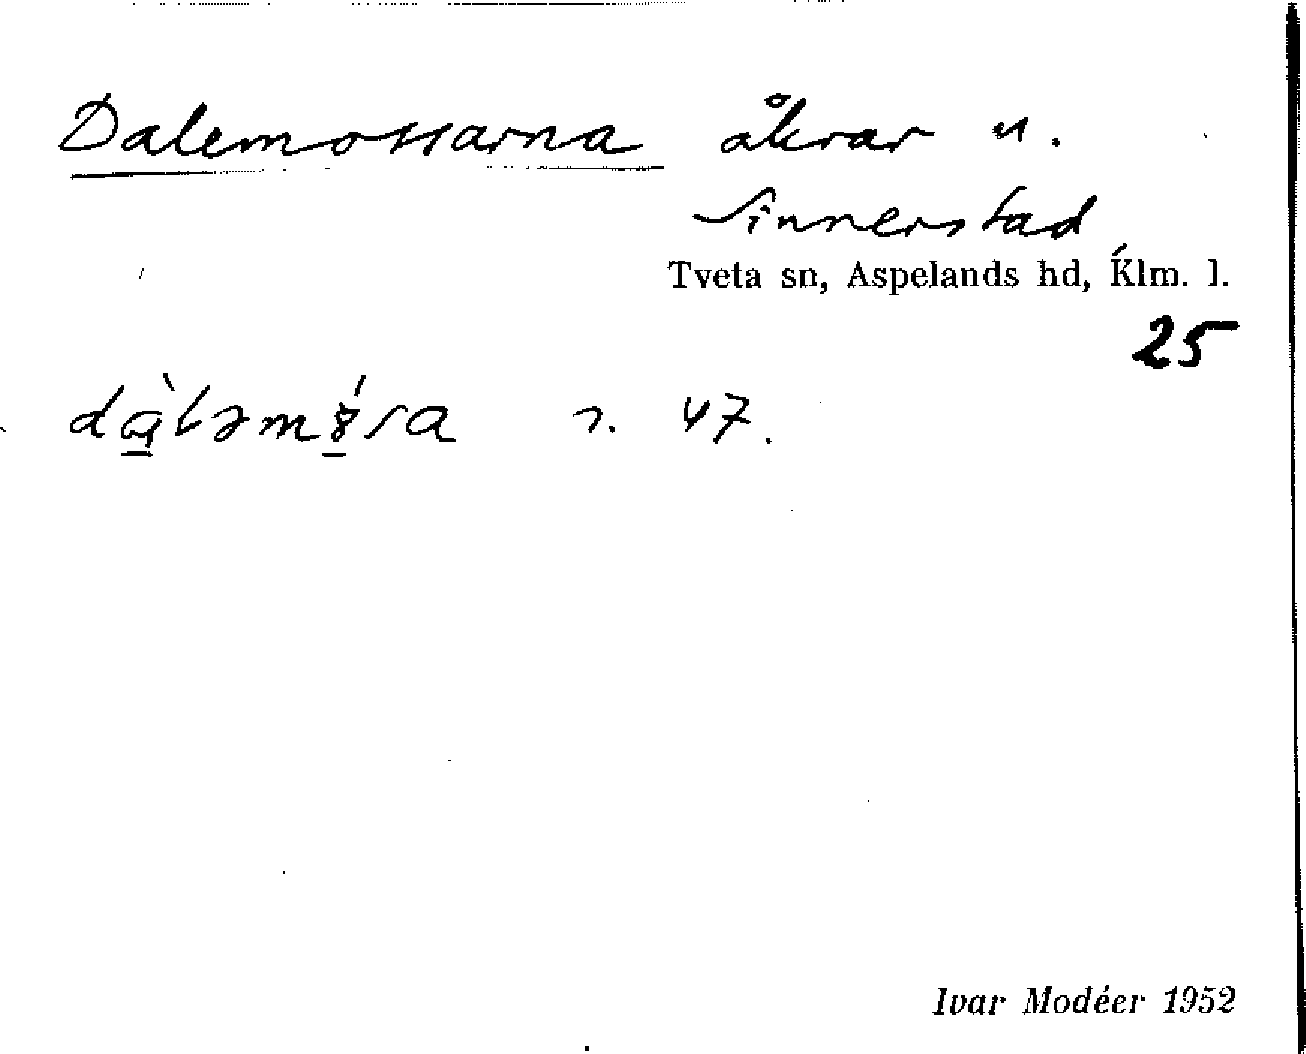 Dalemossarna åkrar u.
Sinnerstad
Tveta sn, Aspelands hd, Klm. l.
25
s. 47.
Ivar Modéer 1952